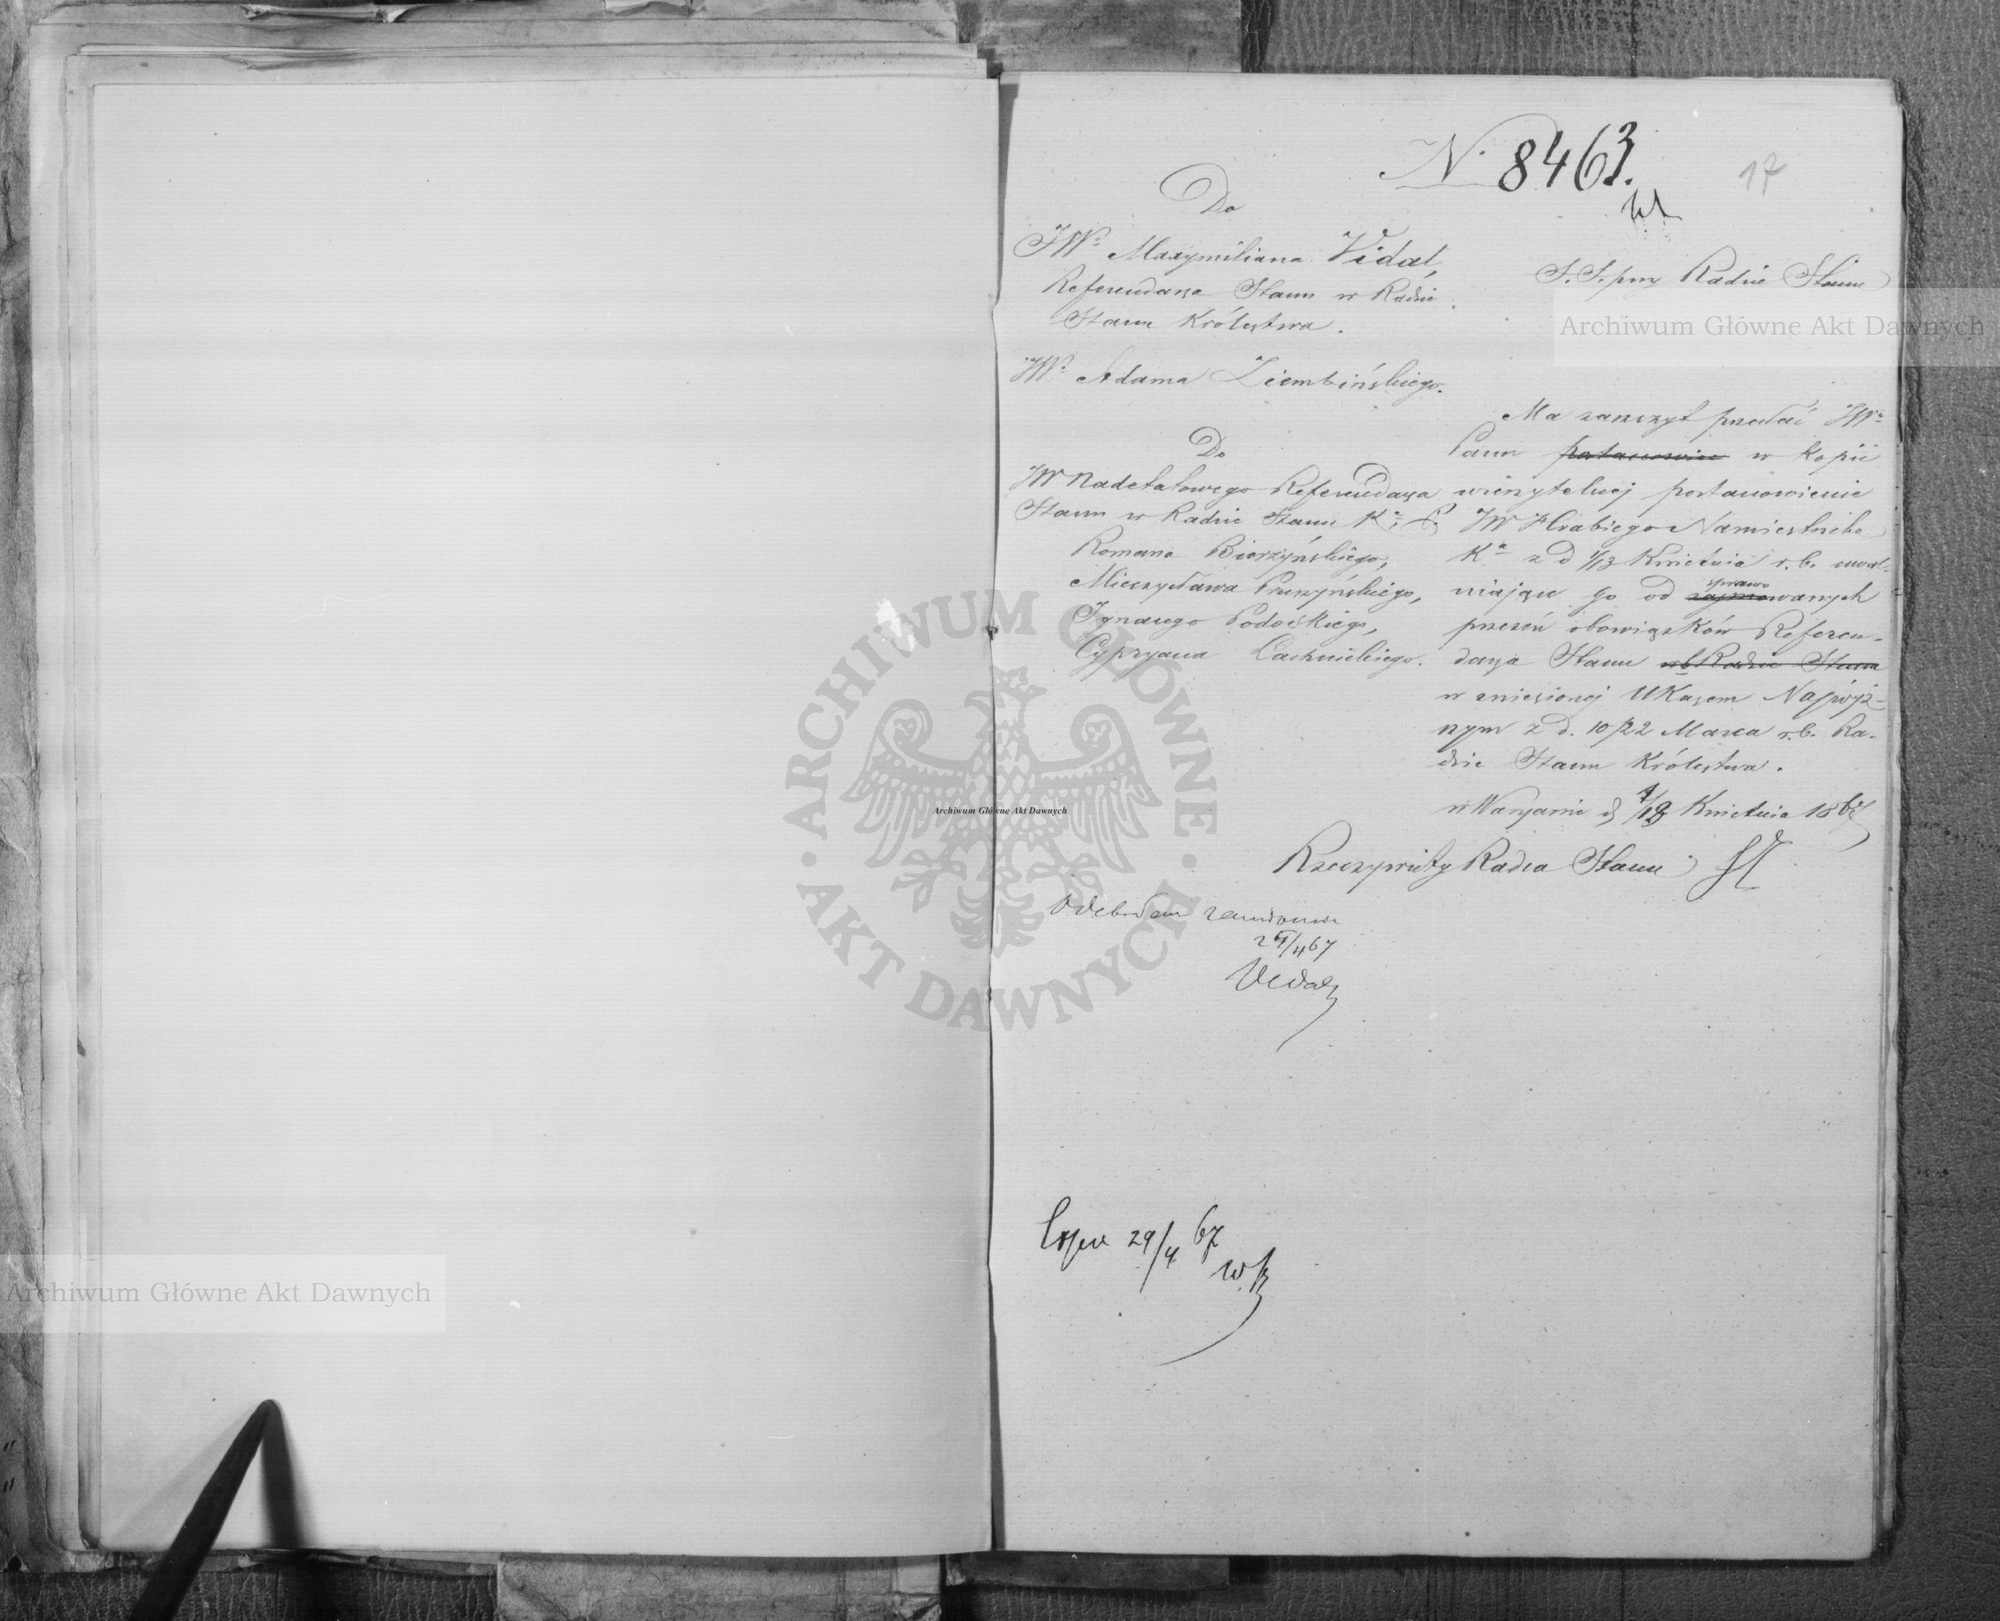 N. 8463.
17
Do
JWo Maxymiliana Vidal,
Referendarza Stanu w Radzie
Stanu Królestwa.
JWo Adama Ziembińskiego.
Do
JW Nadetatowego Referendarza
Stanu w Radzie Stanu Ka P.
Romana Bierzyńskiego,
Mieczysława Pruszyńskiego,
Ignacego Podoskiego,
Cypryana Lachnickiego.
S. S. przy Radzie Stanu
Ma zaszczyt przesłać JWu
Panu w Kopii
wierzytelnej postanowienie
JW Hrabiego Namiestnika
Ka z d 1/13 Kwietnia r.b. uwal-
niające go od sprawowanych
przezeń obowiązków Referen-
darza Stanu w Radzie Stanu
w zniesionej Ukazem Najwyż-
nym z d. 10/22 Marca r.b. Ra-
dzie Stanu Królestwa.
w Warszawie d /19 Kwietnia 1867
Rzeczywisty Radca Stanu
Odebrałem
/4 67
Vidal
29/4 67
Archiwum Główne Akt Dawnych
Archiwum Główne Akt Dawnych
Archiwum Główne Akt Dawnych
ARCHIWUM GŁÓWNE
AKT DAWNYCH